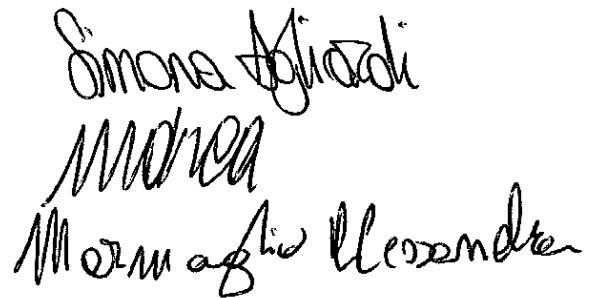 Simona Agliardi
Andrea
Marmaglio Alessandra